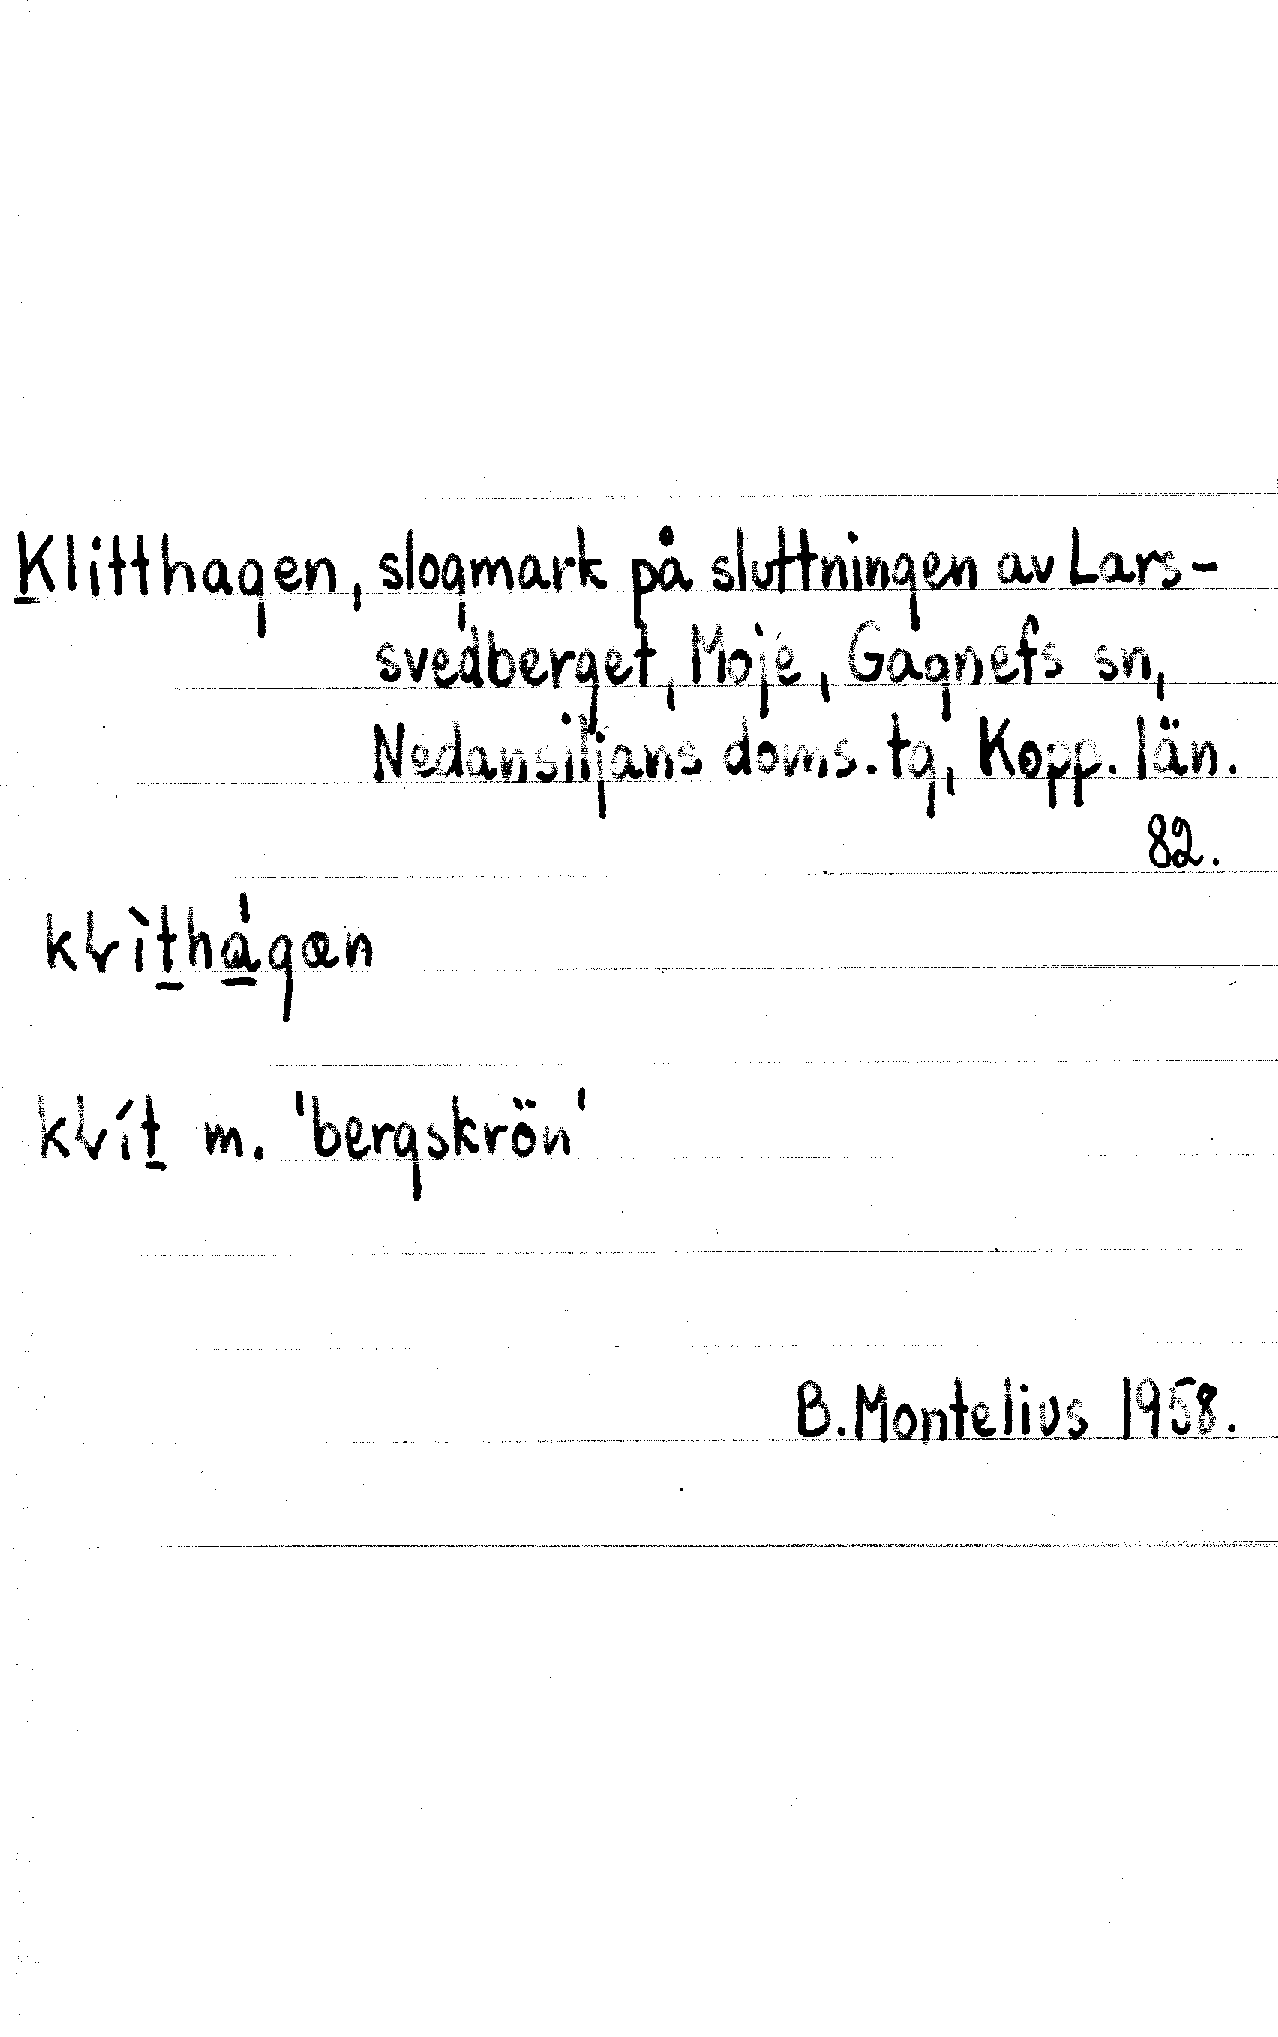 Klitthagen, slogmark på sluttningen av Lars-
svedberget, Moje, Gagnefs sn,
Nedansiljans doms. tg, Kopp. län.
82.
m. 'bergskrön'
B. Montelius 1958.